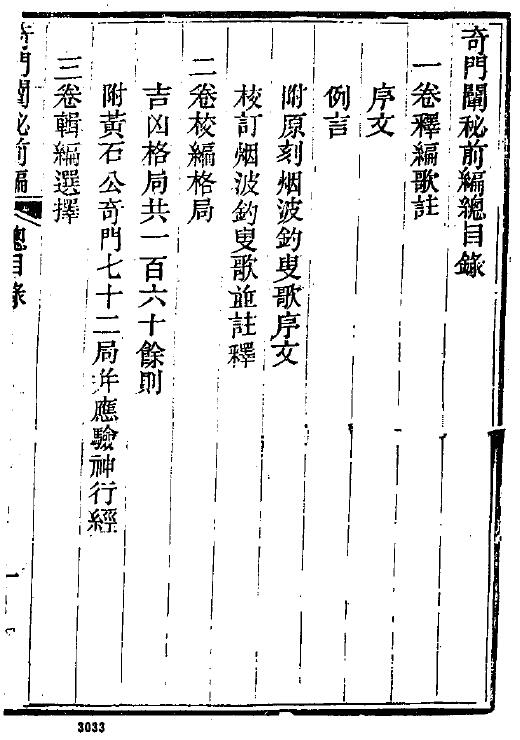 奇門闡秘前編總目錄
一卷釋編歌註
序文
例言
附原刻烟波釣叟歌序文
校訂烟波釣叟歌並註釋
二卷校編格局
吉凶格局共一百六十餘則
附黃石公奇門七十二局并應驗神行經
三卷輯編選擇
奇門闡秘前編
總目錄
一
3033